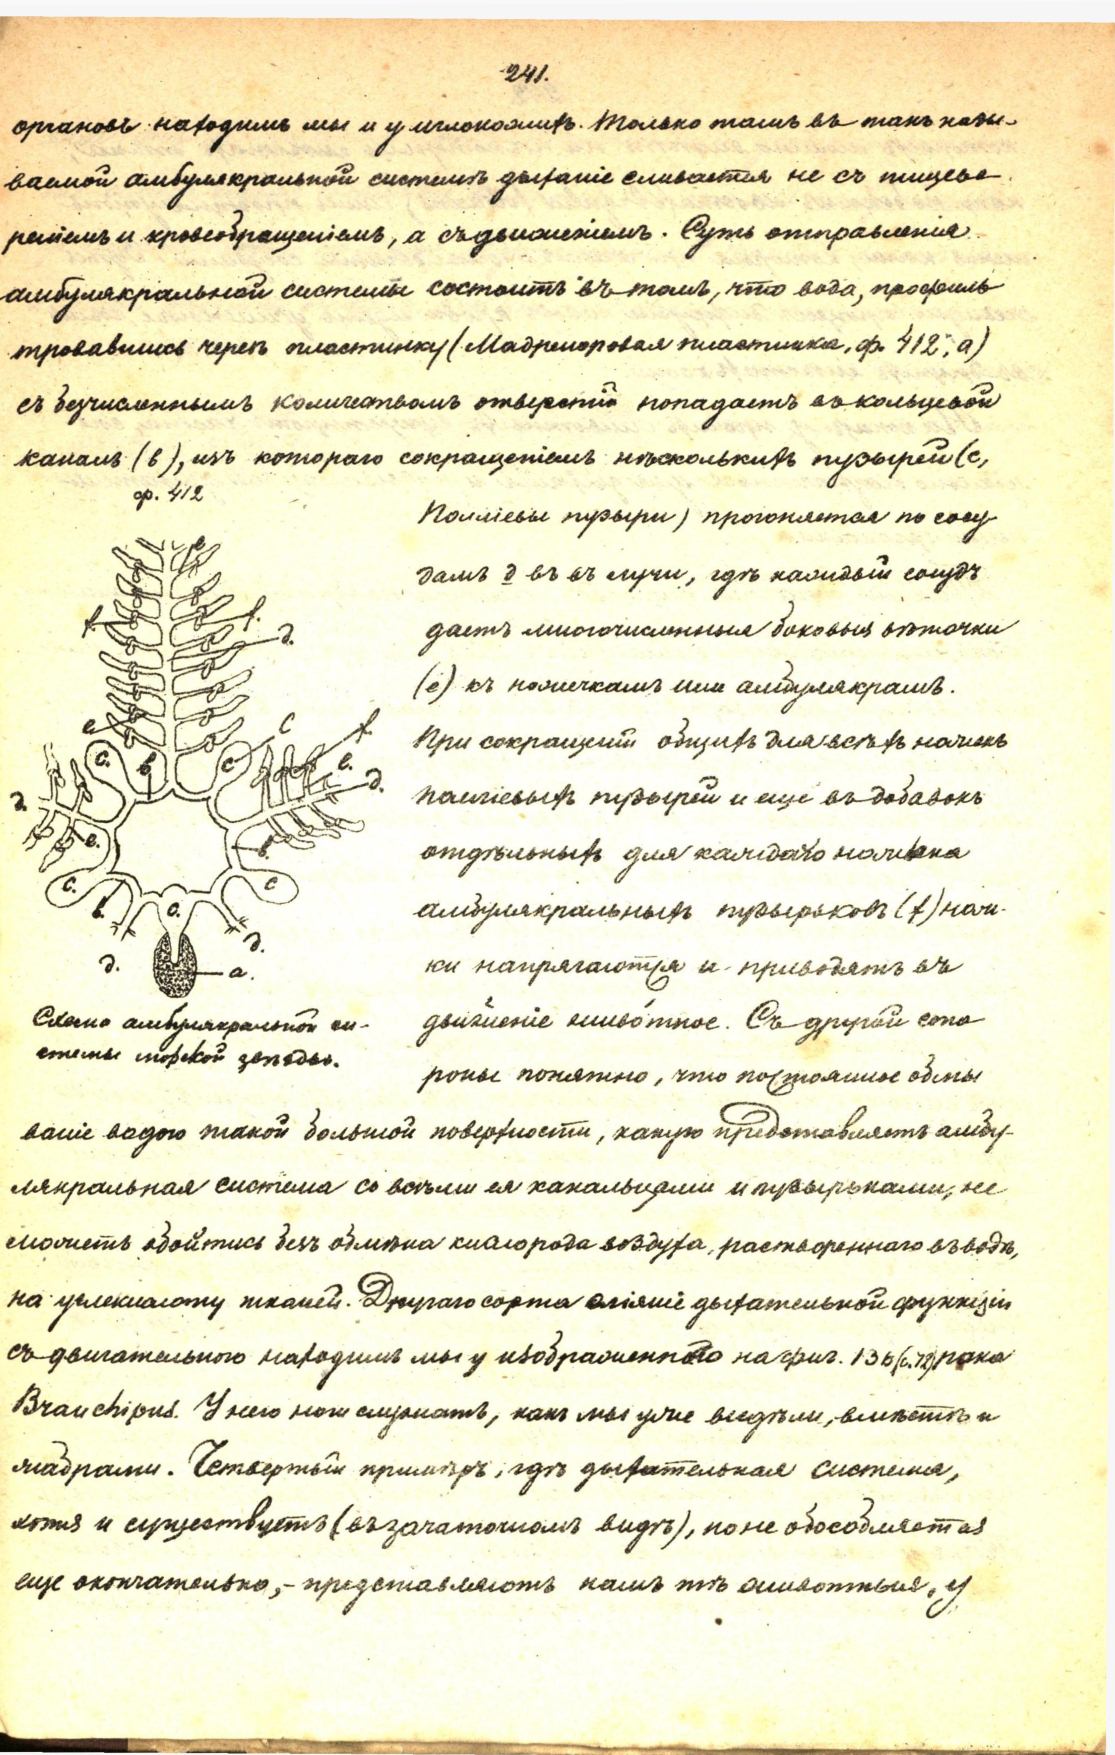 241.
органовъ находимъ мы и у иглокожихъ. Только тамъ въ такъ назы-
ваемой амбулякральной системѣ дыханіе сливается не съ пищева-
реніемъ и кровеобращеніемъ, а съ движеніемъ. Суть отправленія
амбулякральной системы состоитъ въ томъ, что вода, профиль
тровавшись черезъ пластинку (Мадрепоровая пластинка, ф. 412, а)
съ безчисленнымъ количествомъ отверстій попадаетъ въ кольцевой
каналъ (b), изъ котораго сокращеніемъ нѣсколькихъ пузырей (с,
ф. 412
Поліевы пузыри) прогоняется по сосу
дамъ д въ въ лучи, гдѣ каждый сосудъ
даетъ многочисленныя боковыя вѣточки
(е) къ ножкамъ или амбулякрамъ.
При сокращеніи общихъ для всѣхъ ножекъ
поліевыхъ пузырей и еще въ добавокъ
отдѣльныхъ для каждаго ножека
амбулякральныхъ пузырьковъ (f) нож-
ки напрягаются и приводятъ въ
движеніе животное. Съ другой сто
роны понятно, что постоянное обмы
e
f.
f.
д.
e
c
f.
c.
b
c
e.
д.
д.
e.
b.
c.
c
b.
c.
д.
д.
a.
Схема амбулякральной си-
стемы морской звѣзды.
ваніе водою такой большой поверхности, какую представляетъ амбу-
лякральная система со всѣми ея канальцами и пузырьками, не
можетъ обойтись безъ обмѣна кислорода воздуха, раствореннаго въ водѣ,
на углекислоту тканей. Другаго сорта сліяніе дыхательной функціи
съ двигательною находимъ мы у изображеннаго на фиг. 136 (с. 72) рака
Branchipus. У него ноги служатъ, какъ мы уже видѣли, вмѣстѣ и
жабрами. Четвертый примѣръ, гдѣ дыхательная система,
хотя и существуетъ (въ зачаточномъ видѣ), но не обособляется
еще окончательно, - представляютъ намъ тѣ животныя, у